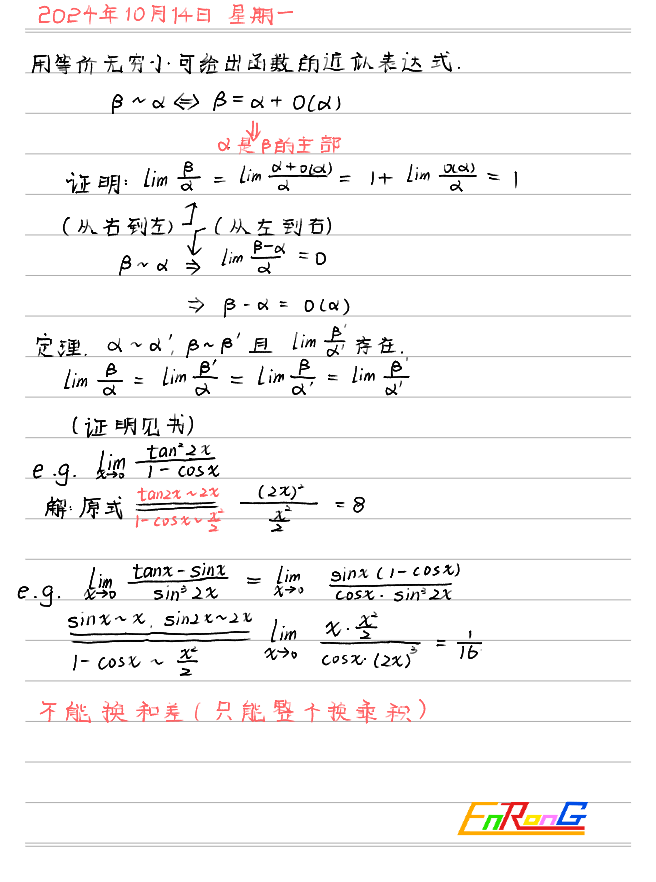 2024年10月14日 星期一
用等价无穷小可给出函数的近似表达式.
β ~ α ⇔ β = α + o(α)
⇓
α是β的主部
证明: lim β/α = lim (α+o(α))/α = 1 + lim o(α)/α = 1
(从右到左) (从左到右)
β ~ α ⇒ lim (β-α)/α = 0
⇒ β - α = o(α)
定理. α ~ α', β ~ β' 且 lim β'/α' 存在.
lim β/α = lim β'/α = lim β/α' = lim β'/α'
(证明见书)
e.g. lim x→0 tan²2x/(1-cosx)
解: 原式 tan2x~2x 1-cosx~x²/2 (2x)²/(x²/2) = 8
e.g. lim x→0 (tanx-sinx)/sin³2x = lim x→0 sinx(1-cosx)/(cosx·sin³2x)
sinx~x, sin2x~2x 1-cosx~x²/2 lim x→0 (x·x²/2)/(cosx·(2x)³) = 1/16
不能换和差(只能整个换乘积)
EnRonG